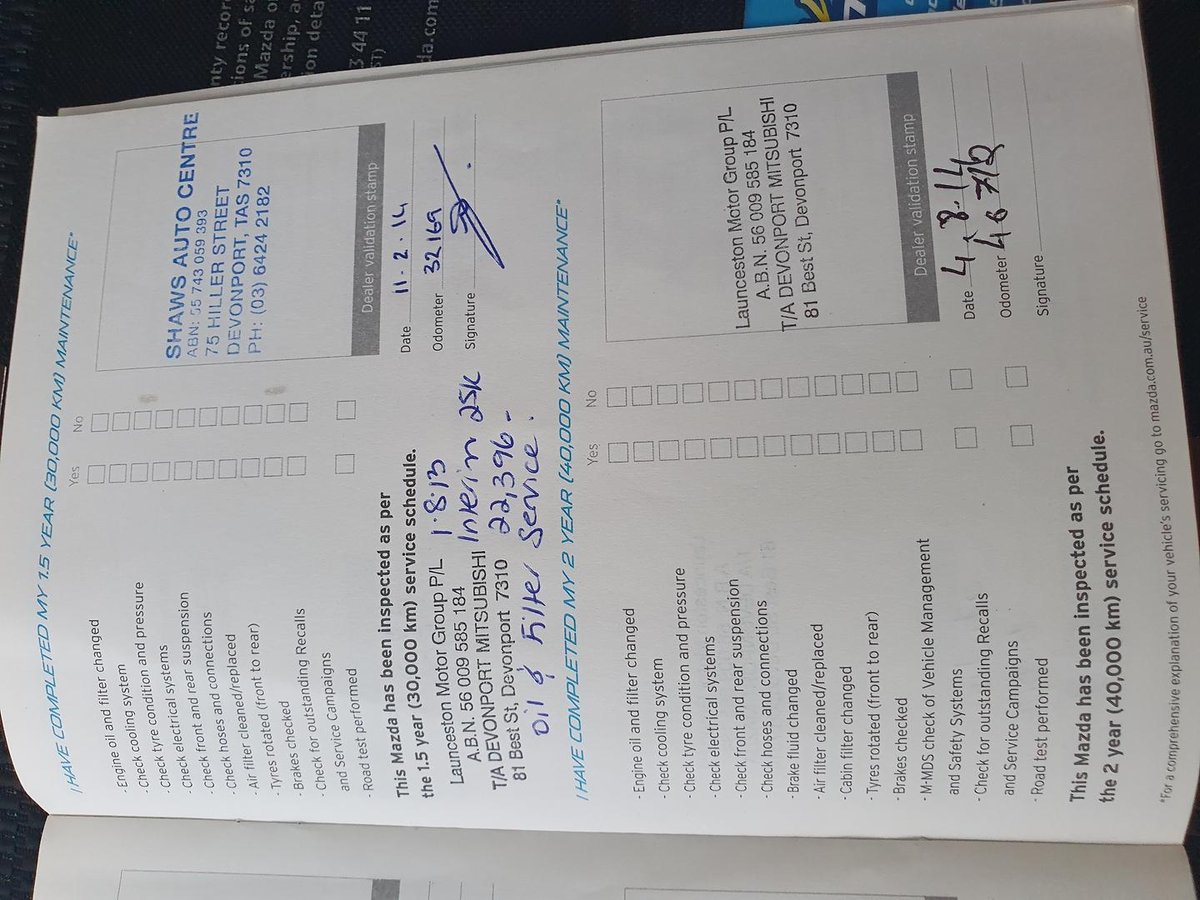 I HAVE COMPLETED MY 1.5 YEAR (30,000 KM) MAINTENANCE*
Yes No
- Engine oil and filter changed
- Check cooling system
- Check tyre condition and pressure
- Check electrical systems
- Check front and rear suspension
- Check hoses and connections
- Air filter cleaned/replaced
- Tyres rotated (front to rear)
- Brakes checked
- Check for outstanding Recalls
and Service Campaigns
- Road test performed
SHAWS AUTO CENTRE
ABN: 55 743 059 393
75 HILLER STREET
DEVONPORT, TAS 7310
PH: (03) 6424 2182
Dealer validation stamp
This Mazda has been inspected as per
the 1.5 year (30,000 km) service schedule.
Date 11.2.14
Odometer 32169
Signature
Launceston Motor Group P/L 1.8.13
A.B.N. 56 009 585 184 Interim 25K
T/A DEVONPORT MITSUBISHI 22,396-
81 Best St, Devonport 7310
oil & Filter Service.
I HAVE COMPLETED MY 2 YEAR (40,000 KM) MAINTENANCE*
Yes No
- Engine oil and filter changed
- Check cooling system
- Check tyre condition and pressure
- Check electrical systems
- Check front and rear suspension
- Check hoses and connections
- Brake fluid changed
- Air filter cleaned/replaced
- Cabin filter changed
- Tyres rotated (front to rear)
- Brakes checked
- M-MDS check of Vehicle Management
and Safety Systems
- Check for outstanding Recalls
and Service Campaigns
- Road test performed
Launceston Motor Group P/L
A.B.N. 56 009 585 184
T/A DEVONPORT MITSUBISHI
81 Best St, Devonport 7310
Dealer validation stamp
Date 4.8.14
Odometer 46712
Signature
This Mazda has been inspected as per
the 2 year (40,000 km) service schedule.
*For a comprehensive explanation of your vehicle's servicing go to mazda.com.au/service